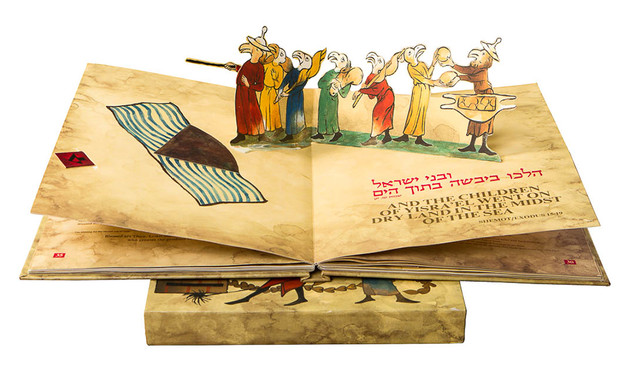 ובני ישראל
הלכו ביבשה בתוך הים
AND THE CHILDREN
OF YISRA'EL WENT ON
DRY LAND IN THE MIDST
OF THE SEA
SHEMOT/EXODUS 15:19